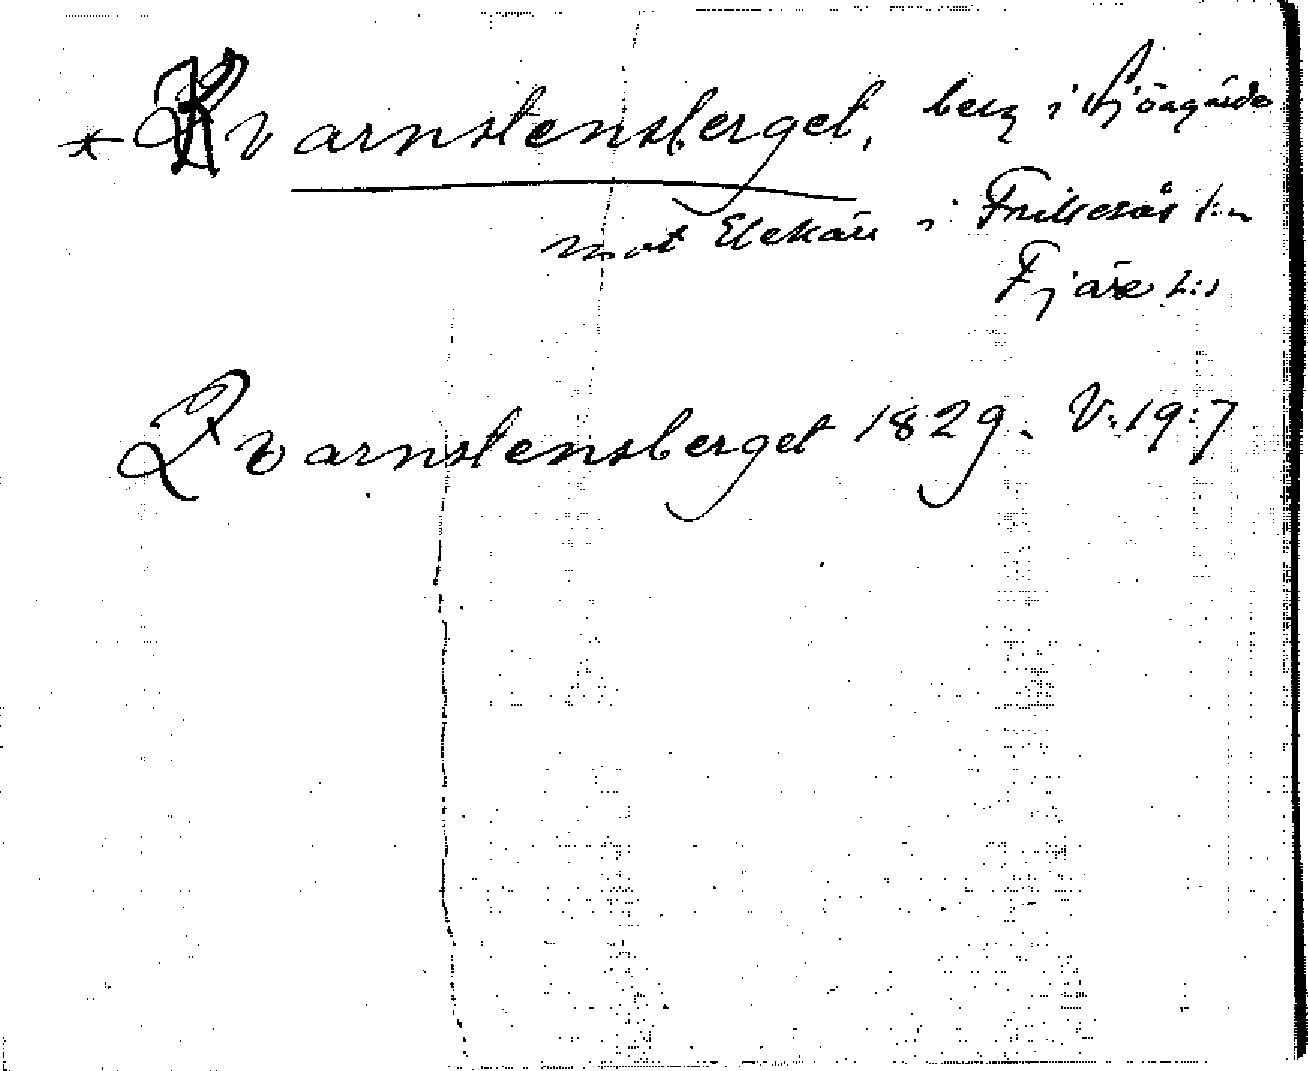 * Kvarnstensberget, berg i Hjörgärde
mot Elekärr i Frillesås sn
Fjäre hd
Qvarnstensberget 1829. V:19:7